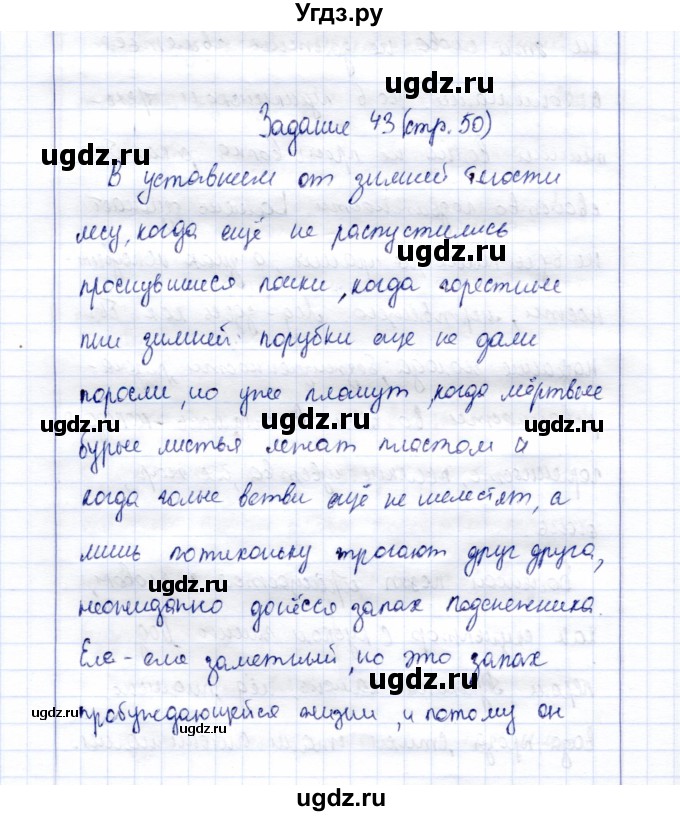 Угдз.ру
ugdz.ru
Задание 43 (стр. 50)
ugdz.ru ugdz.ru
В уставшем от зимней тягости
лесу, когда ещё не распустились
ugdz.ru
проснувшиеся почки, когда горестные
пни зимней порубки ещё не дали
ugdz.ru
поросли, но уже плачут, когда мёртвые
ugdz.ru ugdz.ru
бурые листья лежат пластом и
когда голые ветви ещё не шелестят, а
лишь потихоньку трогают друг друга,
ugdz.ru
неожиданно донёсся запах подснежника.
Еле-еле заметный, но это запах
ugdz.ru
ugdz.ru пробуждающейся жизни, и потому он
ugdz.ru
ugdz.ru